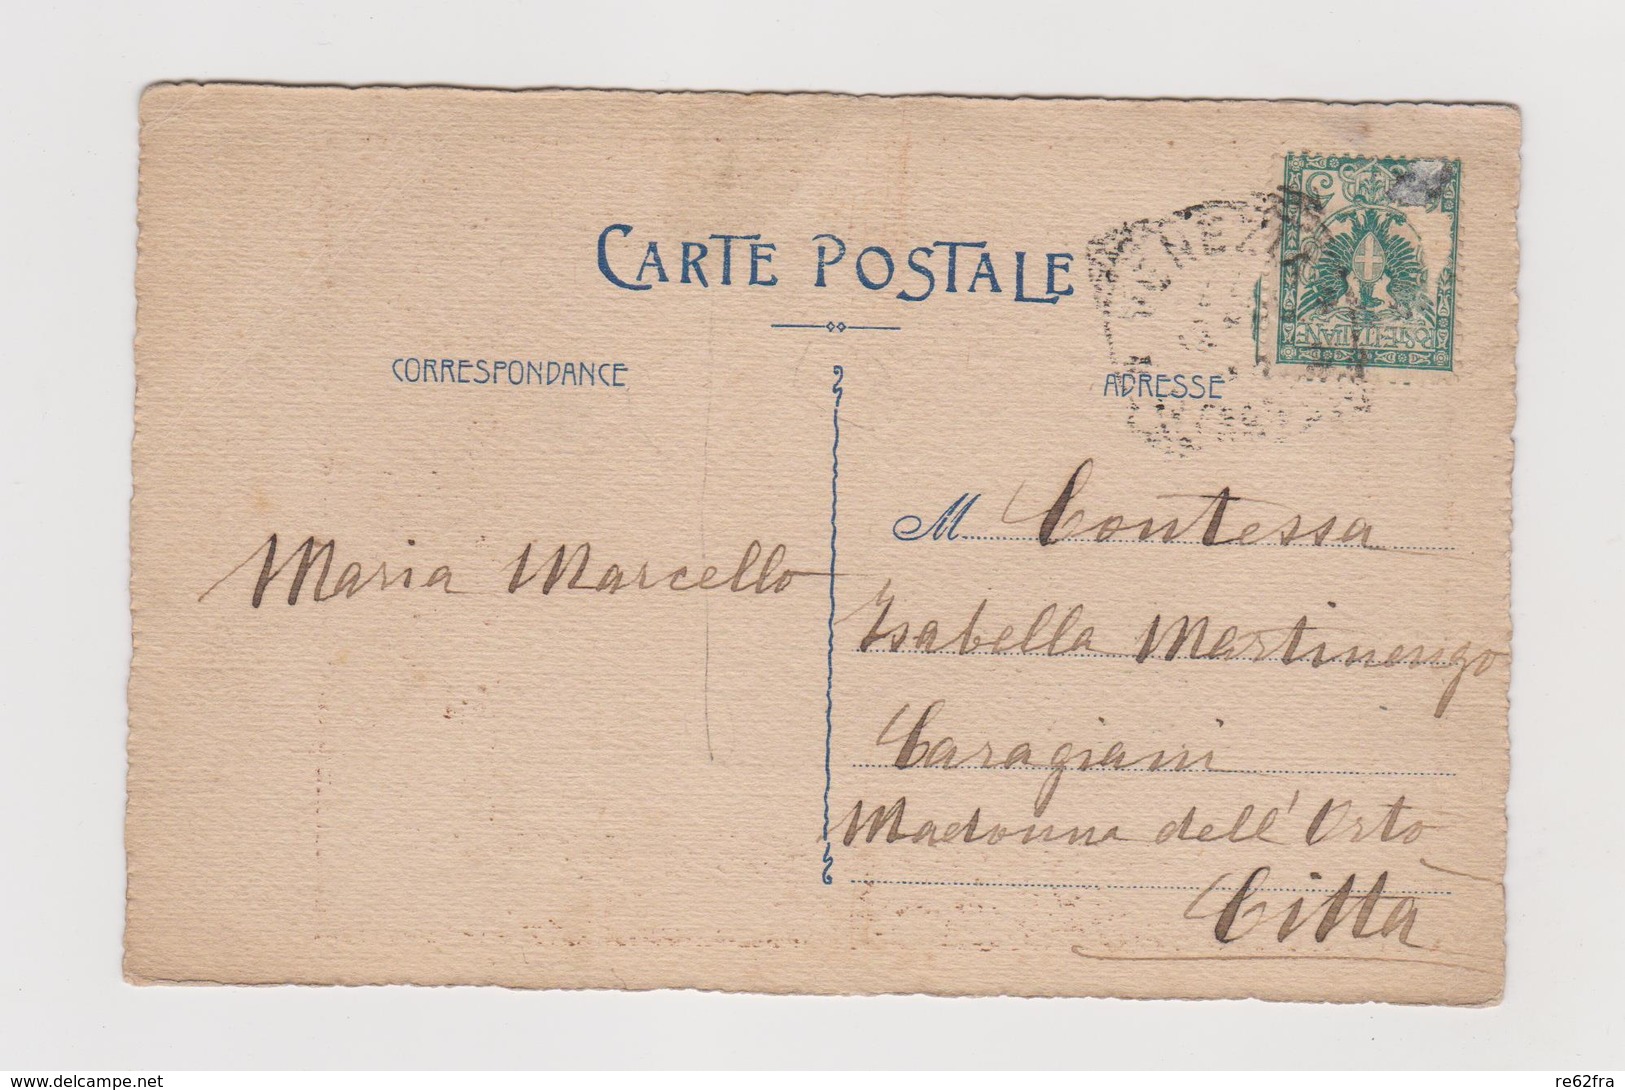 CARTE POSTALE
CORRESPONDANCE
ADRESSE
VENEZIA
POSTE ITALIANE
5
Maria Marcello
M Contessa
Isabella Martinengo
Caragiani
Madonna dell'Orto
Città
delcampe.net
re62fra